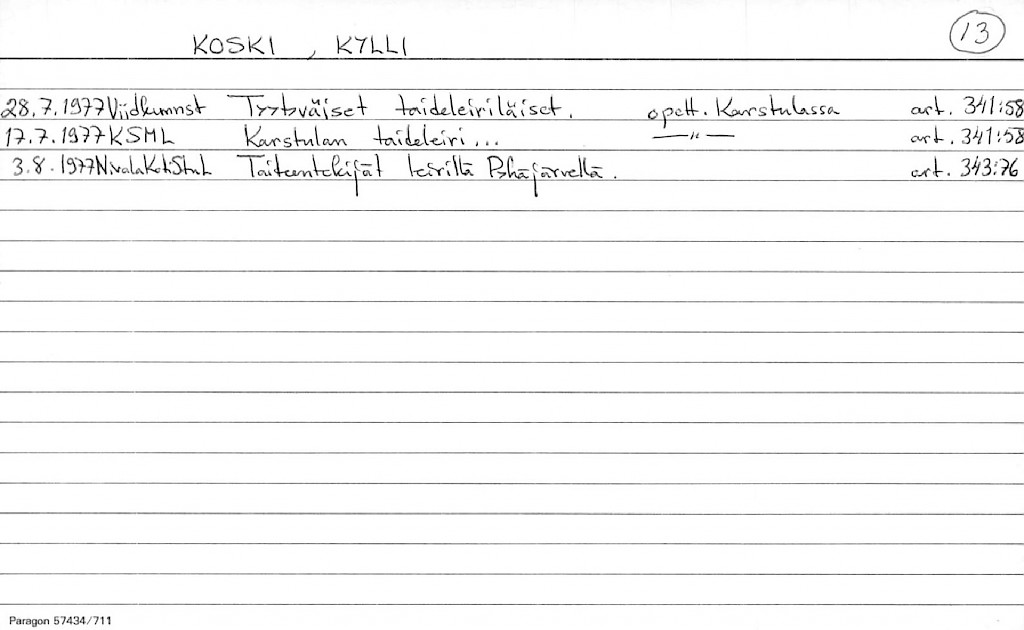 KOSKI, KYLLI 13
28.7.1977 Viidkunnst Tyytyväiset taideleiriläiset. opett. Karstulassa art. 341:58
17.7.1977 KSML Karstulan taideleiri... —"— art. 341:58
3.8.1977 NivalaKotiStuL Taiteentekijät leirillä Pyhäjärvellä. art. 343:76
Paragon 57434/711